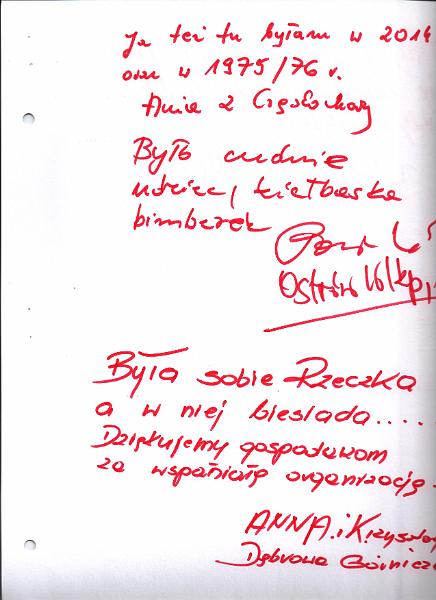 Ja też tu byłam w 2014
oraz w 1975/76 r.
Ania z Częstochowy
Było cudnie
udziec, kiełbaska
bimberek
Ostrów Wlkp.
Była sobie Rzeczka
a w niej biesiada....
Dziękujemy gospodarzom
za wspaniałą organizację.
ANNA i Krzysztof
Dąbrowa Górnicza